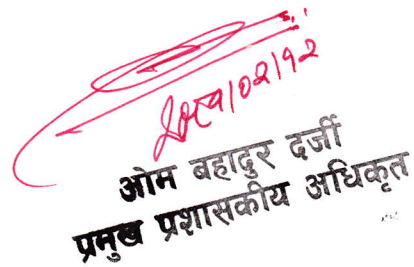 २०८१/०२/१२
ओम बहादुर दर्जी
प्रमुख प्रशासकीय अधिकृत